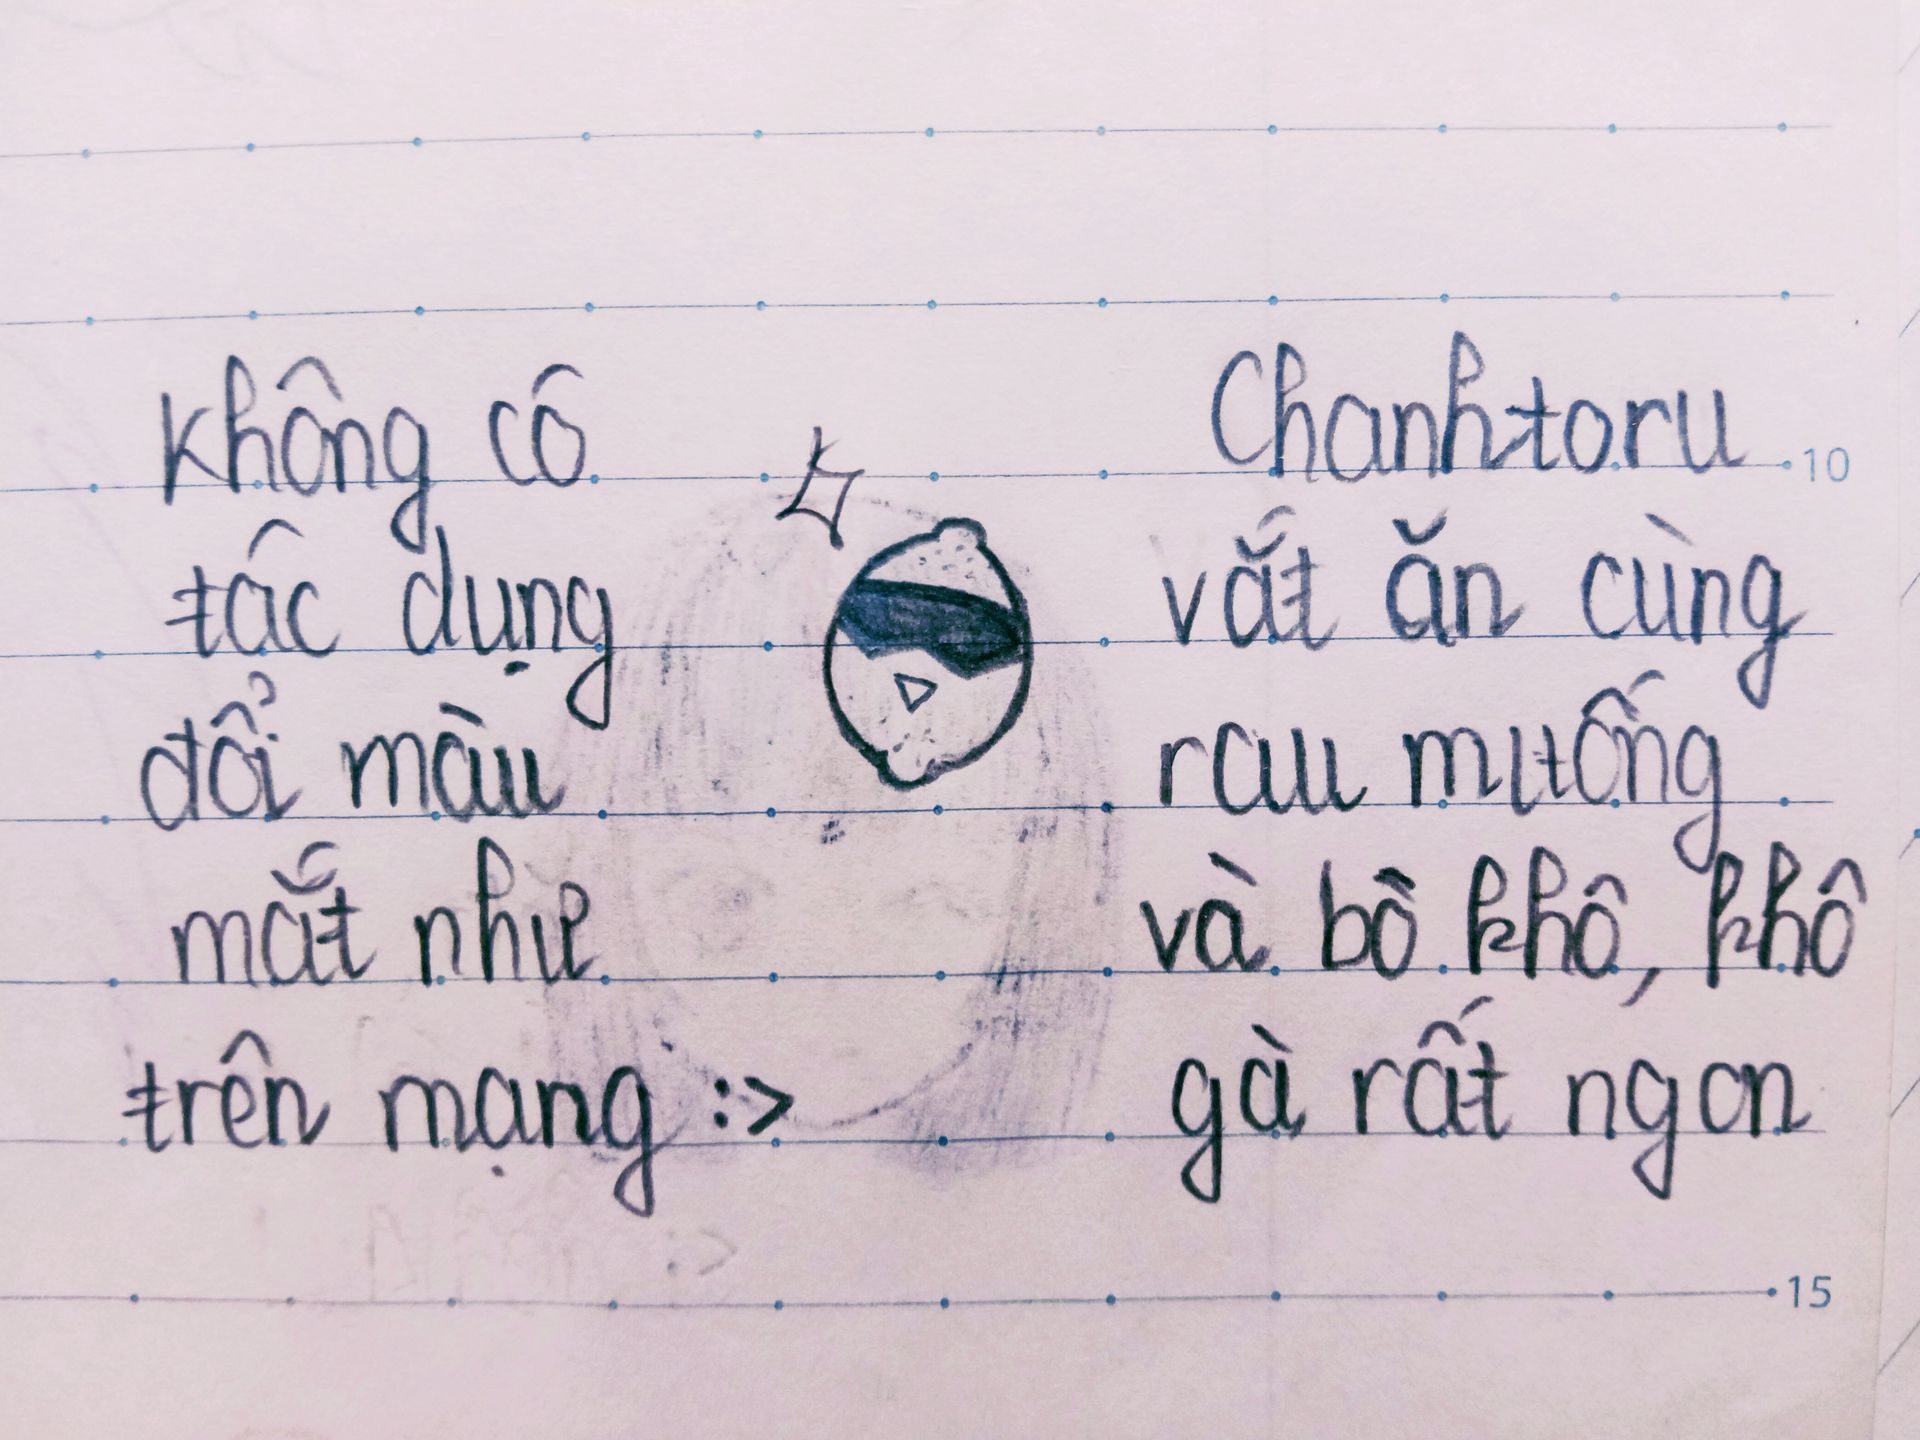 Không có
tác dụng
đổi màu
mắt như
trên mạng :>
Chanhtoru
vắt ăn cùng
rau muống
và bò khô, khô
gà rất ngon
10
15